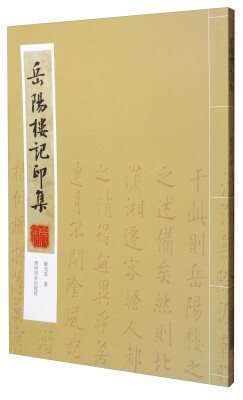 岳陽樓記印集
千此則岳陽樓
之述備矣然則北
瀟湘遷客騷人多
之情得無異乎若
連月不開陰風怒